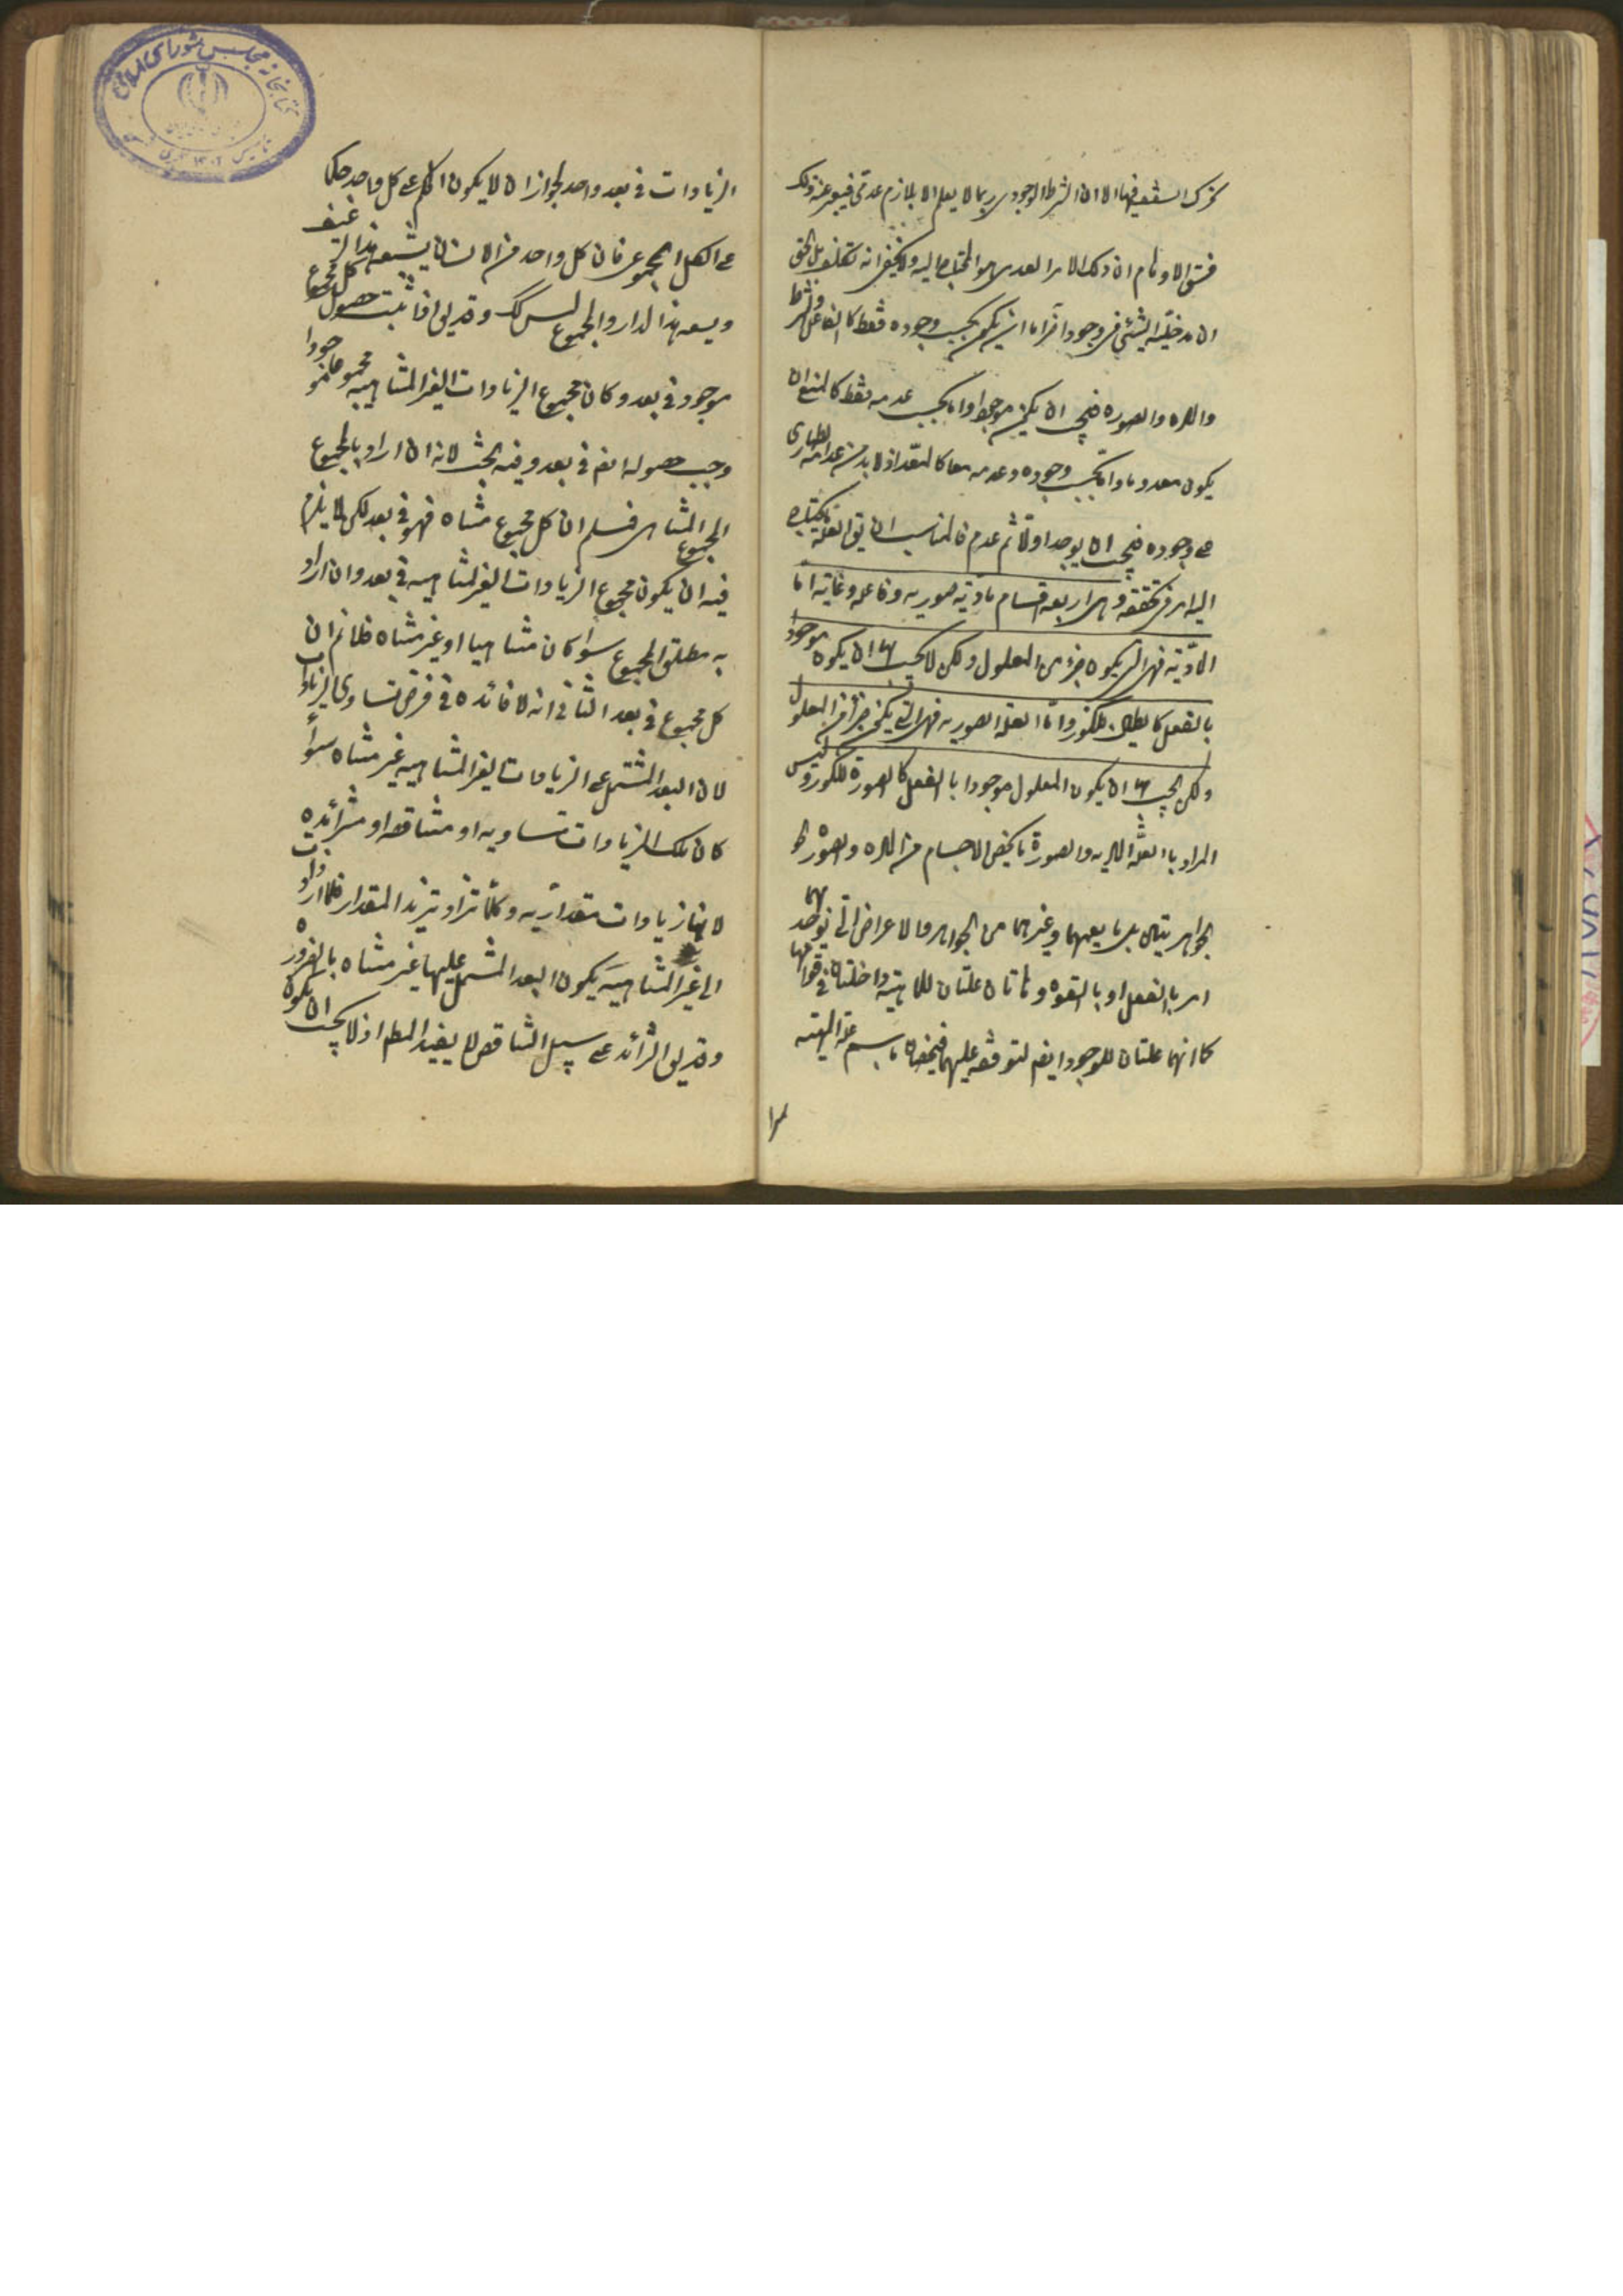 السقف فيها الا ان الشرط الوجودى ربما لا يعلم الا بلازم عدمى فيعبر عنه بذلك
فسبق الاوهام ان ذلك الامر العدمى هو المحتاج اليه ولا يخفى انه تكلف بل الحق
ان مدخلية الشئ فى وجود آخر اما ان يكون بحسب وجوده فقط كالفاعل والشرط
والماده والصوره فيجب ان يكون موجودا واما بحسب عدمه فقط كالمانع ان
يكون معدوما واما بحسب وجوده وعدمه معا كالمعد اذ لا بد من عدمه الطارى
على وجوده فيجب ان يوجد اولا ثم عدم فالمناسب ان يق العلة ما يحتاج
اليه امر فى تحققه وهى اربعة اقسام مادية صوريه وفاعله وغائيه اما
المادية فهى التى يكون جزء من المعلول ولكن لا يجب بها ان يكون موجودا
بالفعل كالطين للكوز واما العله الصوريه فهى التى يكون جزأ من المعلول
ولكن يجب بها ان يكون المعلول موجودا بالفعل كالصورة للكوز وليس
المراد بالعلة الماديه والصورة ما يخص الاجسام من الماده والصوره
الجواهر يتين بل ما يعمهما وغيرهما من الجواهر والاعراض التى يوجد بهما
امر بالفعل او بالقوه وهاتان علتان للماهية داخلتان فى قوامها
كما انهما علتان للوجود ايضه لتوقفه عليهما فيخصان باسم علة المهية
الزيادات فى بعد واحد لجواز ان لا يكون الحكم على كل واحد حكما
على الكل المجموعى فان كل واحد من الانسان يشبعه هذا الرغيف
ويسعه هذا الدار والمجموع ليس كك وقد يق اذا ثبت حصول كل مجموع
موجود فى بعد وكان مجموع الزيادات الغير المتناهيه مجموعا موجودا
وجب حصوله ايضه فى بعد وفيه بحث لانه ان اراد بالمجموع
المجموع المتناهى فمسلم ان كل مجموع متناه فهو فى بعد لكن لا يلزم
فيه ان يكون مجموع الزيادات الغير المتناهيه فى بعد وان اراد
به مطلق المجموع سواء كان متناهيا او غير متناه فلانم ان
كل مجموع فى بعد الثانى انه لا فائده فى فرض تساوى الزيادات
لان البعد المشتمل على الزيادات الغير المتناهيه غير متناه سواء
كان تلك الزيادات متساويه او متناقصه او متزائده
لانها زيادات مقداريه وكلما تزاد يزيد المقدار فلما ازدادت
الى غير المتناهية يكون البعد المشتمل عليها غير متناه بالضروره
وقد يق التزائد على سبيل التناقص لا يفيد المطم اذ لا يجب ان يكون